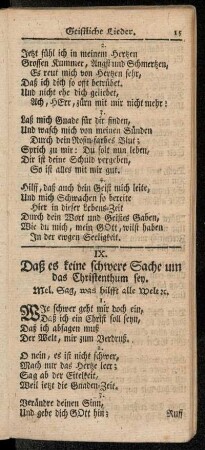 Geistliche Lieder. 15
2.
Jetzt fühl ich in meinem Hertzen
Grossen Kummer, Angst und Schmertzen,
Es reut mich von Hertzen sehr,
Daß ich dich so offt betrübet,
Und nicht ehe dich geliebet,
Ach, HErr, zürn mit mir nicht mehr!
3.
Laß mich Gnade für dir finden,
Und wasch mich von meinen Sünden
Durch dein Rosin-farbes Blut;
Sprich zu mir: Du solt nun leben,
Dir ist deine Schuld vergeben,
So ist alles mit mir gut.
4.
Hilff, daß auch dein Geist mich leite,
Und mich Schwachen so bereite
Hier in dieser Lebens-Zeit
Durch dein Wort und Geistes Gaben,
Wie du mich, mein GOtt, wilst haben
In der ewgen Seeligkeit.
IX.
Daß es keine schwere Sache um
das Christenthum sey.
Mel. Sag, was hilfft alle Welt ꝛc.
1.
WIe schwer geht mir doch ein,
Daß ich ein Christ soll seyn,
Daß ich absagen muß
Der Welt, mir zum Verdruß.
2.
O nein, es ist nicht schwer,
Mach nur das Hertze leer;
Sag ab der Eitelkeit,
Weil jetzt die Gnaden-Zeit.
3.
Verändre deinen Sinn,
Und gebe dich GOtt hin;
Ruff